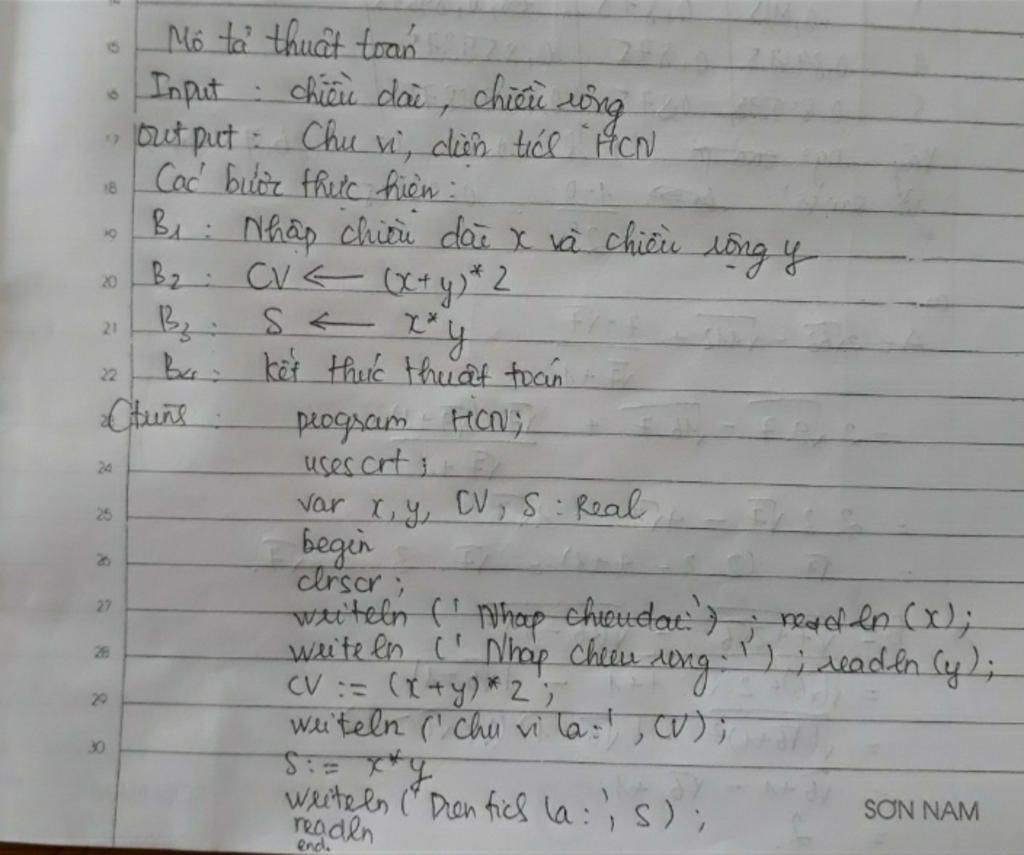 15 Mô tả thuật toán
16 Input : chiều dài, chiều rộng
17 Output : Chu vi, diện tích HCN
18 Các bước thực hiện :
19 B1 : Nhập chiều dài x và chiều rộng y
20 B2 : CV ← (x+y)*2
21 B3 : S ← x*y
22 B4 : kết thức thuật toán
23 Ctrình : program HCN;
24 uses crt ;
25 var x, y, CV, S : Real
begin
26 clrscr ;
27 writeln (' Nhap chieu dai:') ; readln (x);
28 writeln (' Nhap chieu rong :') ; readln (y);
29 CV := (x+y)*2 ;
writeln ('Chu vi la:', CV);
30 S := x*y
writeln ('Dien tich la:', S) ;
readln
end.
SƠN NAM